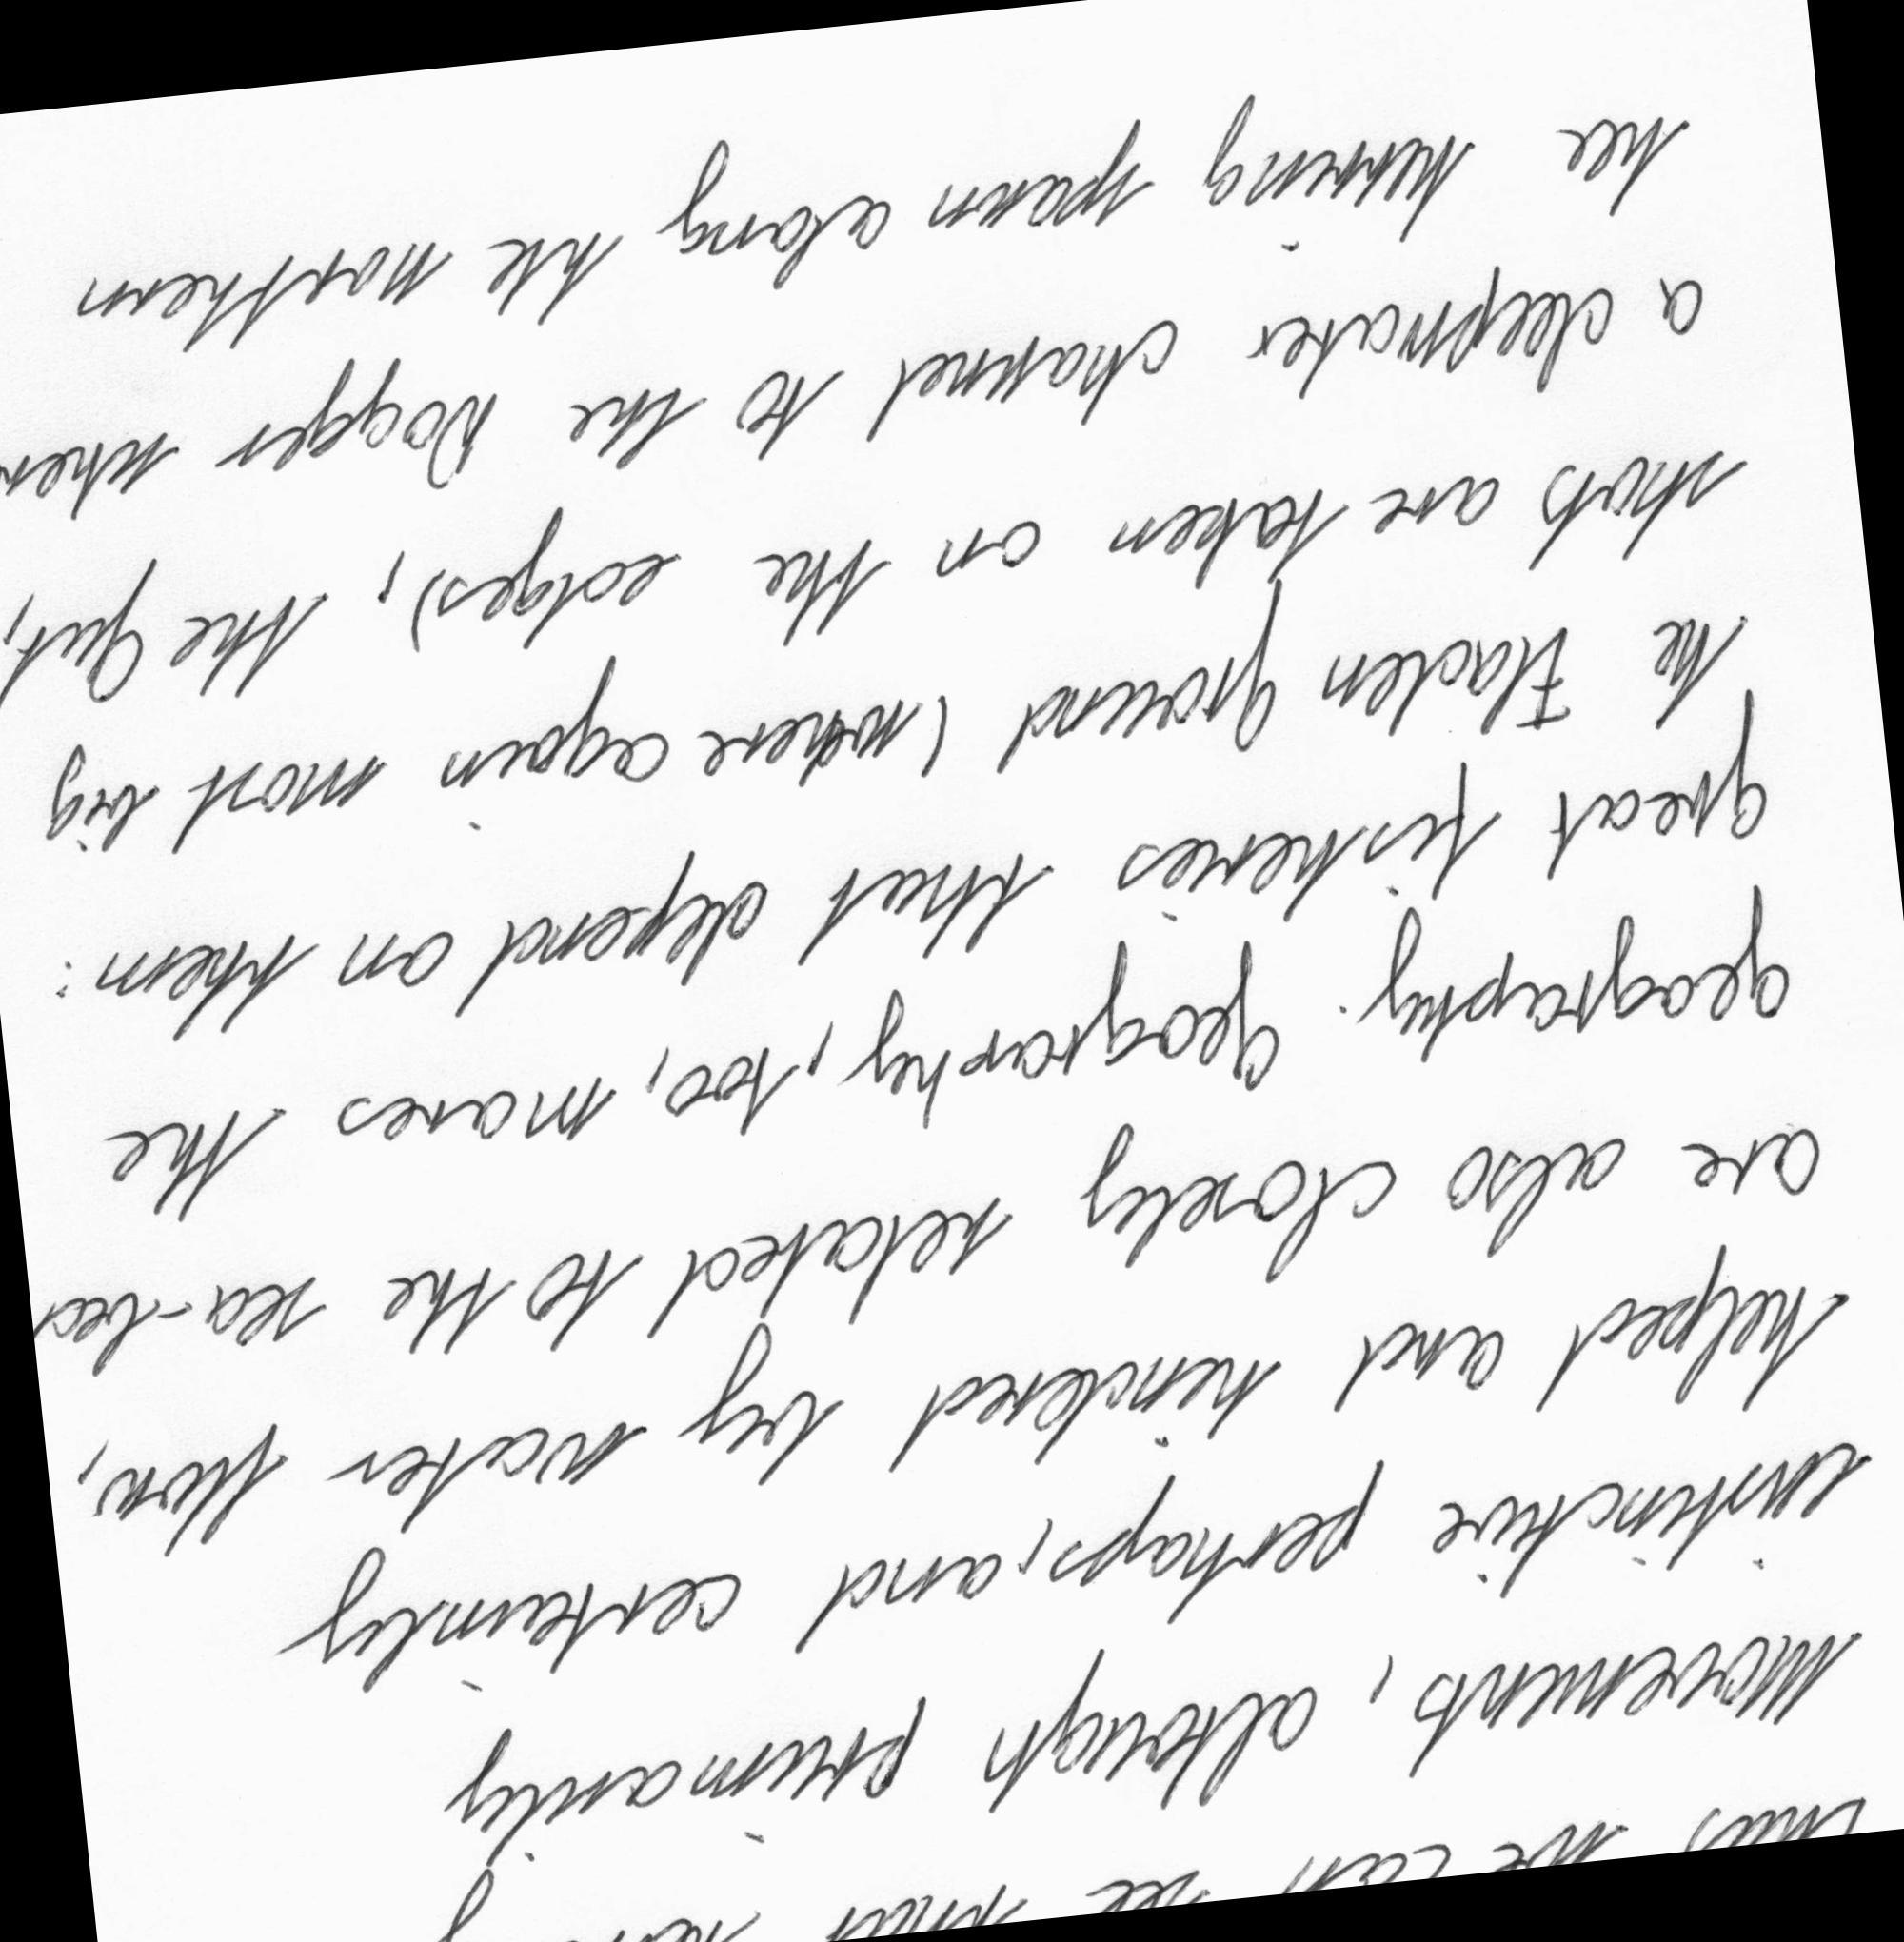 Thus, we can see that
movements, altough primarily
instinctive perhaps, and certainly
helped and hindered by water flow,
are also closely related to the sea-bed
geography. geography, too, moves the
great fisheries that depend on them:
the Fladen ground (where again most big
shots are taken on the edges), the Gut,
a deepwater channel to the Dogger wher
hee herring spawn along the northern